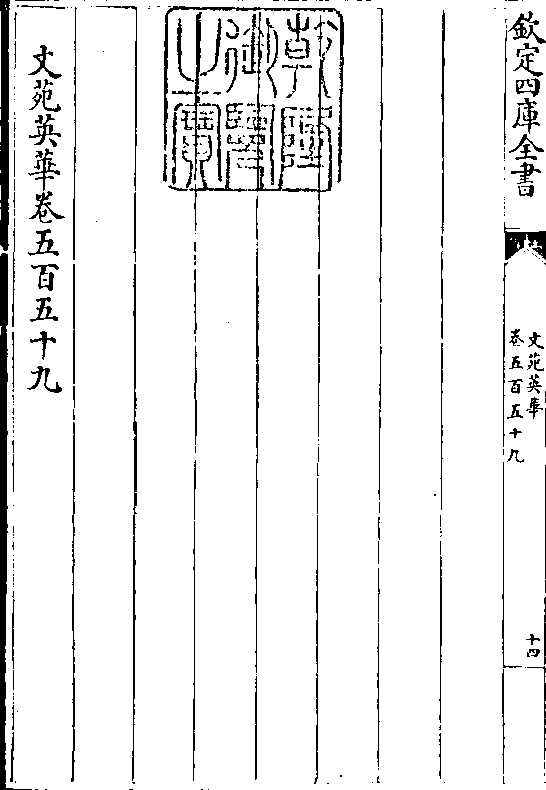 欽定四庫全書
文苑英華
卷五百五十九
十四
乾隆御覽之寶
文苑英華卷五百五十九